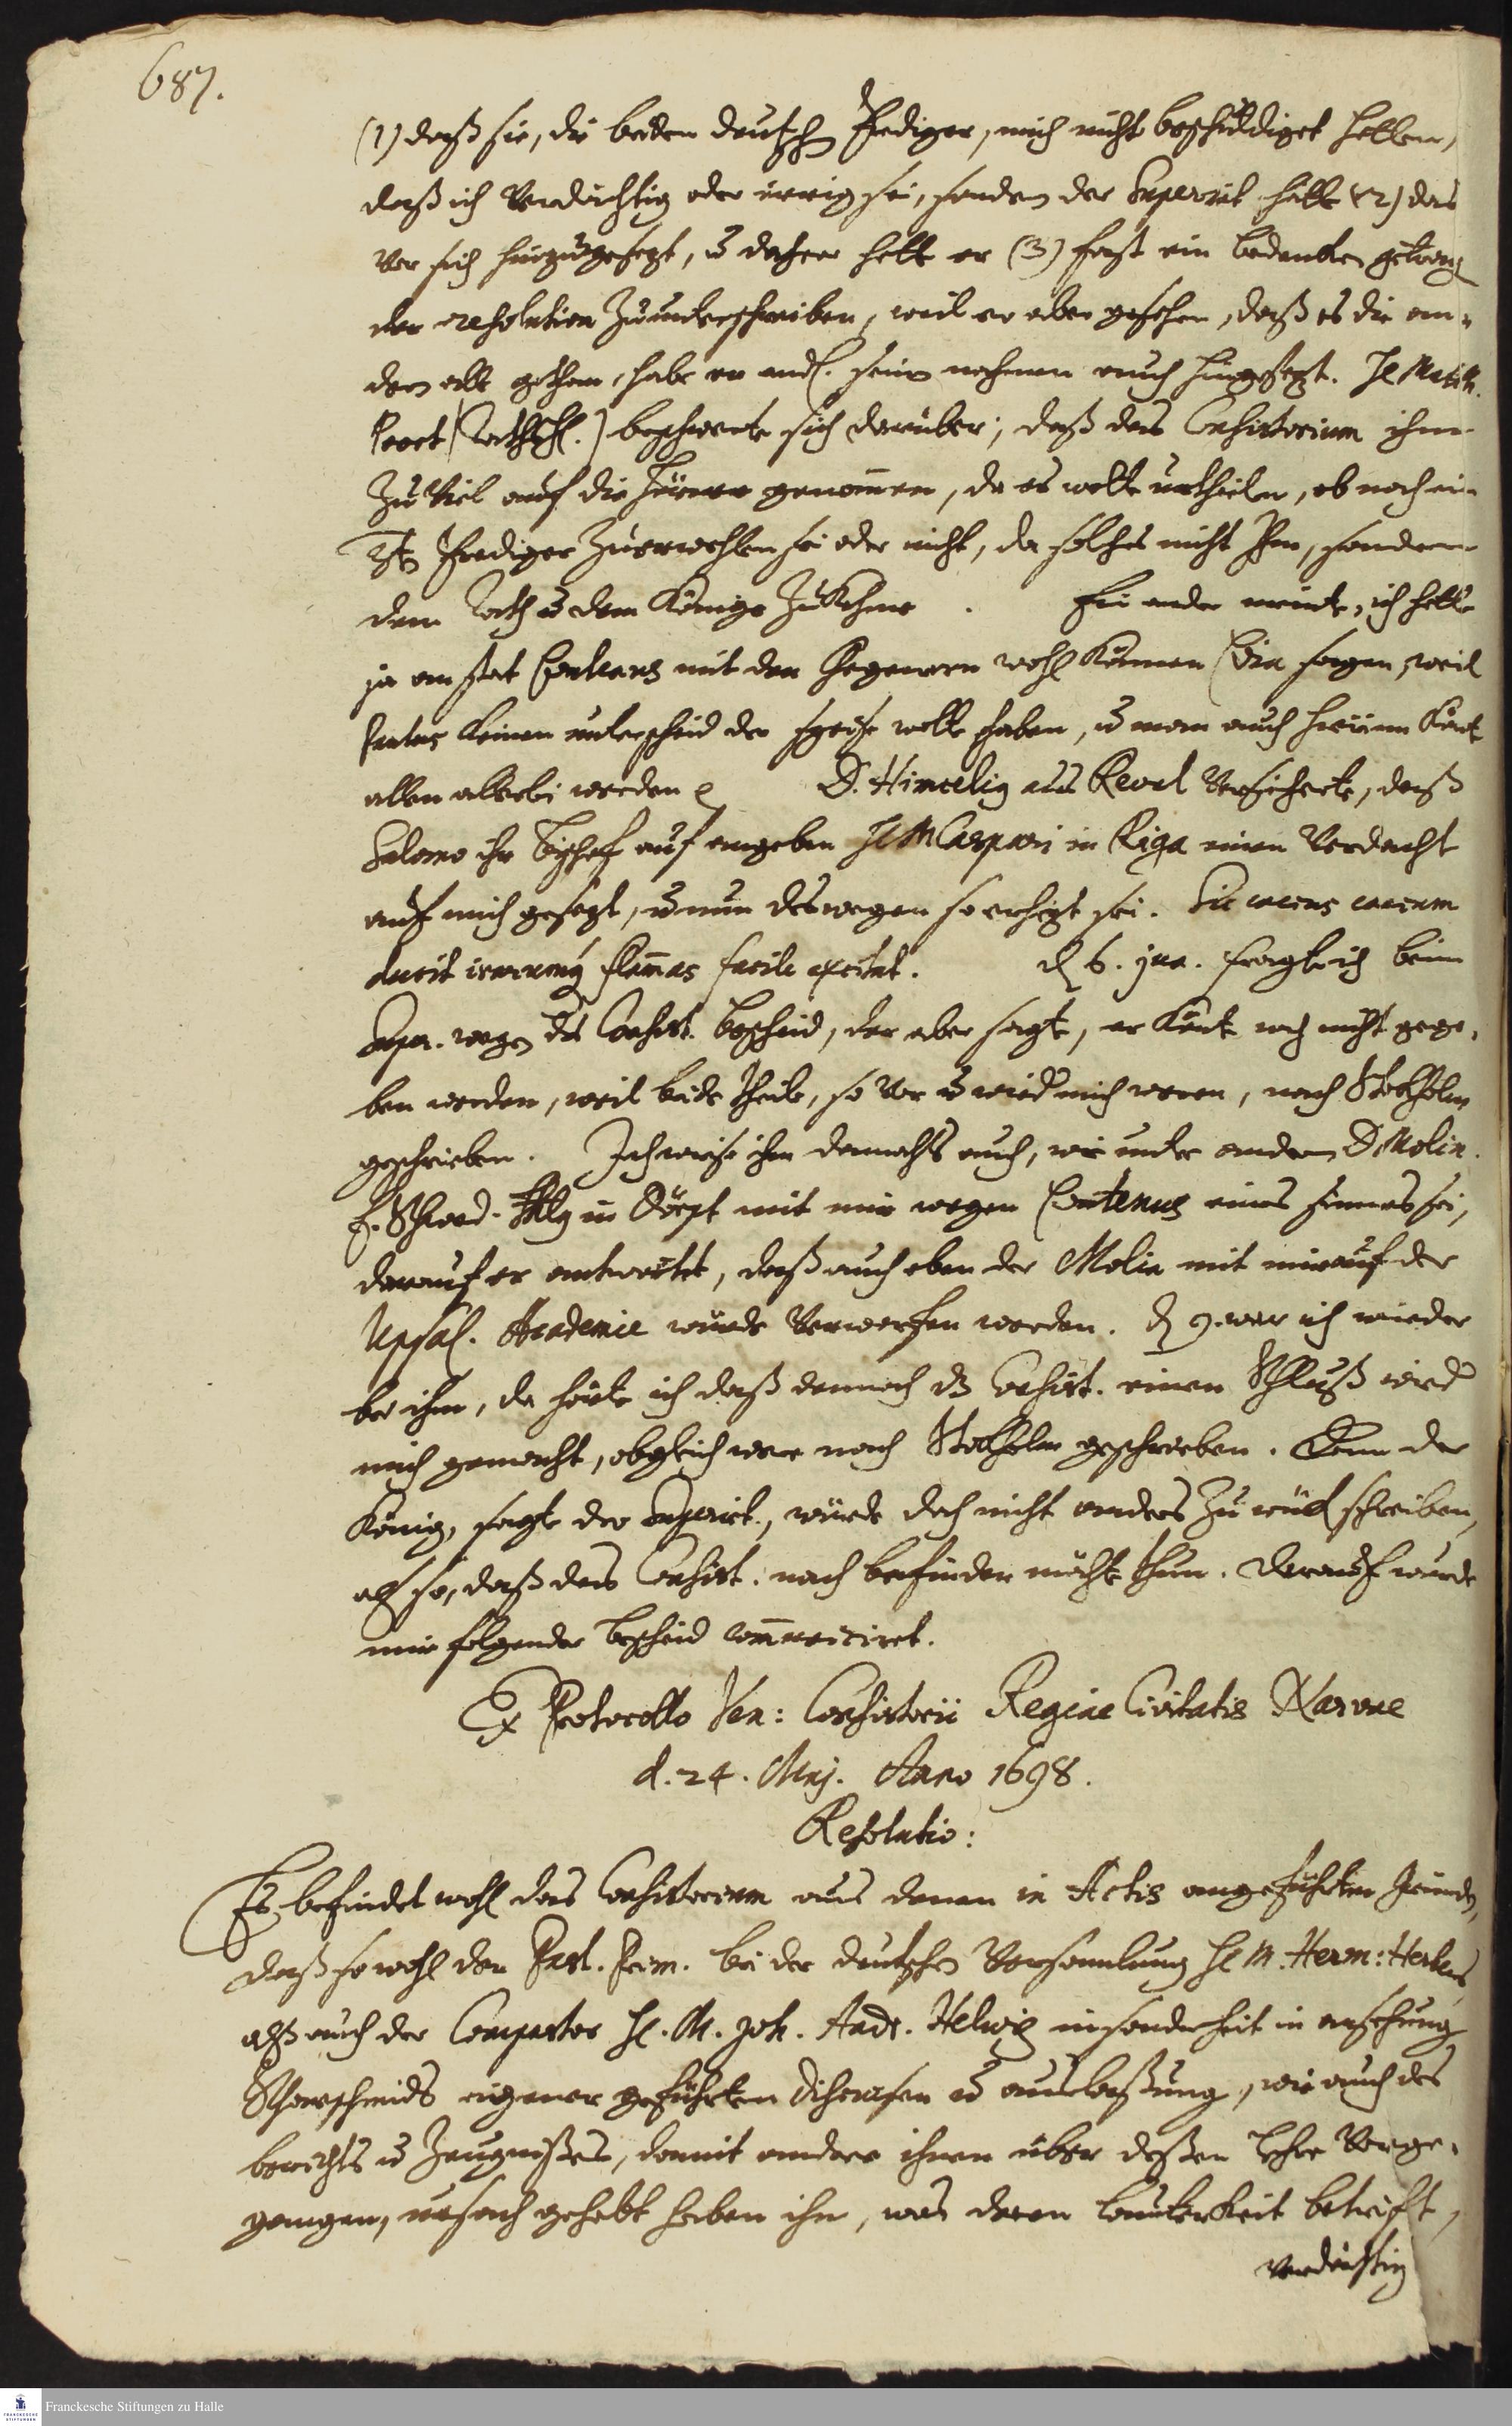 687.
(1) daß sie, die beiden deutsch Prediger, mich nicht beschuldiget hetten,
daß ich Verdächtig oder irrig sei, sondern der Superint hette (2) das
vor sich hinzugesezt, u daher hette er (3) fast ein bedenken getrag
der resolution zuunterschreiben, weil er aber gesehen, daß es die an-
dern alle gethan, habe er endl. sein nahmen auch hingesezt. H. Matth.
beschwerte sich darüber, daß das Consistorium ihm
zu Viel auf die Hörner genommen, da es wolte urtheilen, ob noch ein
Prediger zuerwehlen sei oder nicht, da solches nicht Ihm, sondern
dem Rath u dem Könige zukehme. Ein ander meinte, ich hette
ja anstat Contenus mit den Gegnern wohl können Cöna sagen, weil
Paulus keinen unterscheid der speise wolte haben, u man auch hierinn könte
allen allerlei werden D. Himselig aus Reval versicherte, daß
Salomo ihr Bischof auf angeben H. M Caspari in Riga einen Verdacht
auf mich gesezt, u nun deswegen so erhizt sei. Sic caecus caecum
ducit flam̄as facile excitat. d 6. jun. fragte ich beim
Super. wegen des Consist. bescheid, der aber sagte, er könte noch nicht gege-
ben werden, weil beide theile, so vor u wied mich weren, nach Stokholm
geschrieben. Ich wiese ihm damahls auch, wie unter andern D Molin.
P. Schwed. in Dörpt mit mir wegen Contenus eines sinnes sei,
darauf er antwortet, daß auch eben der Molin mit mir auf der
Upsal. Academie würde Verworfen werden. d 9. war ich wieder
bei ihm, da hörte ich daß dennoch dz Consist. einen Schluß wied
mich gemacht, obgleich were nach Stokholm geschrieben. Denn der
König, sagte der Superint., würde doch nicht anders zurück schreiben,
als so, daß das Consist. nach befinden möchte thun. Darauf wurde
mir folgender bescheid com̄uniciret.
Ex Protocollo Ven: Consistorii Regiae Civitatis Narvae
d. 24. Maj. Anno 1698.
Resolutio:
Es befindet wohl das Consistorium aus denen in Actis angeführten Gründen,
daß so wohl der Past. Prim. bei der deutschen Versamlung H. M. Herm: Herbers
alß auch der Compastor H. M. Joh. Andr. Helwig insonderheit in ansehung
Scharschmids eigener geführten discursen u auslaßung, wie auch des
berichts u Zeugnißes, damit andere ihnen über deßen Lehre Vorge-
gangen, ursach gehabt haben ihn, was deren lauterkeit betrift,
verdächtig
Franckesche Stiftungen zu Halle